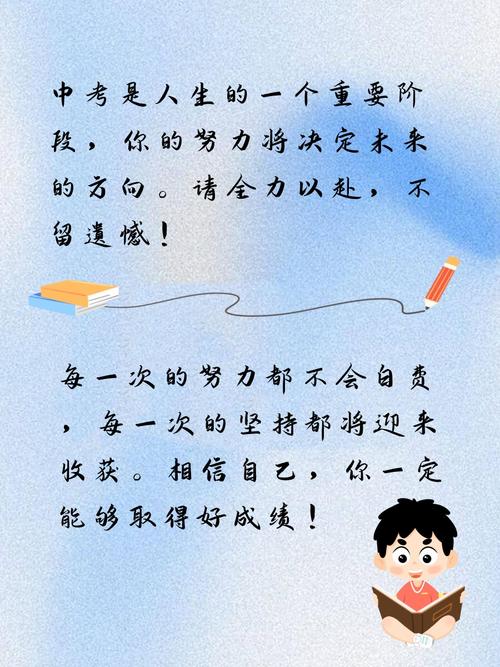 中考是人生的一个重要阶
段，你的努力将决定未来
的方向。请全力以赴，不
留遺憾！
每一次的努力都不会自费
，每一次的坚持都将迎来
收获。相信自己，你一定
能够取得好成绩！